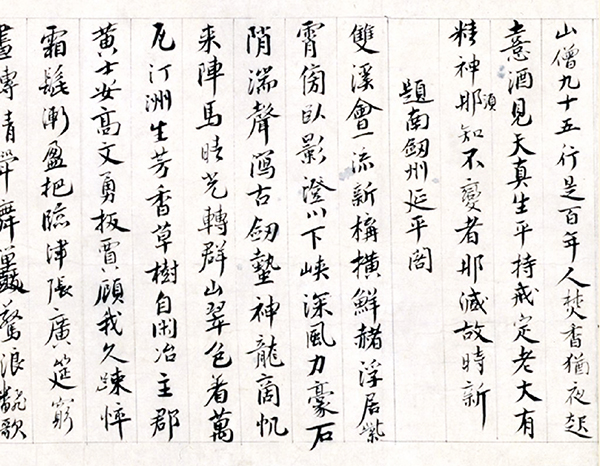 山僧九十五行是百年人焚香猶夜起
憙酒見天真生平持戒定老大有
精神那須知不變者那減故時新
題南劔州延平閣
雙溪會一流新構橫鮮赭浮居紫
霄傍臥影澄川下峽深風力豪石
陗湍聲瀉古劔蟄神龍商帆
来陣馬晴光轉群山翠色着萬
瓦汀洲生芳香草樹自閑冶主郡
黃士安高文勇扳賈顧我久踈悴
霜髭漸盈把臨津張廣筵窮
晝傳清斝舞驚浪翻歌